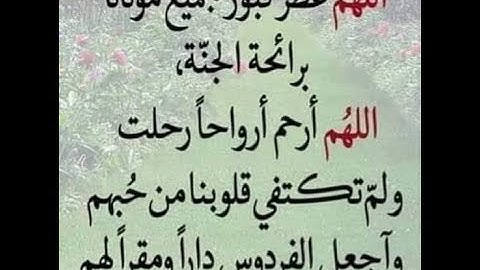 اللهم عطر قبور جميع موتانا
برائحة الجنّة،
اللهُم أرحم أرواحاً رحلت
ولمّ تكتفي قلوبنا من حُبهم
وآجعل الفردوس داراً ومقراً لهم